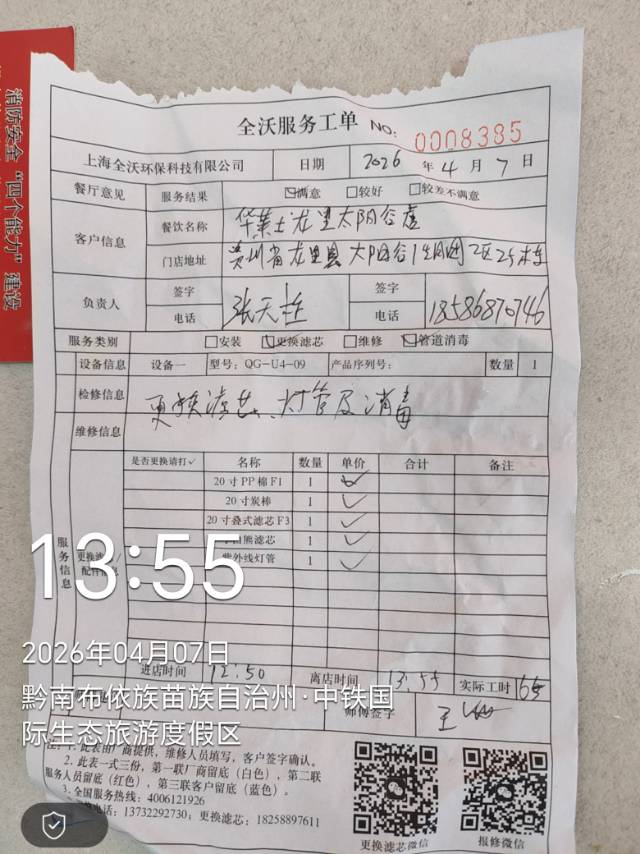 消防安全“四个能力”建设
全沃服务工单 NO: 0008385
上海全沃环保科技有限公司 日期 2026 年 4 月 7 日
餐厅意见 服务结果 ☑满意 □较好 □较差不满意
客户信息 餐饮名称 华莱士龙里太阳谷店
门店地址 贵州省龙里县太阳谷 2区25栋
负责人 签字 张天 签字
电话 电话 18586870746
服务类别 □安装 ☑更换滤芯 □维修 ☑管道消毒
设备信息 设备一 型号: QG-U4-09 产品序列号: 数量 1
检修信息 更换滤芯、灯管及消毒
维修信息
服务信息 更换滤芯/配件信息
是否更换请打✓ 名称 数量 单价 合计 备注
20寸PP棉F1 1 ✓
20寸炭棒 1 ✓
20寸叠式滤芯F3 1 ✓
熊滤芯 1 ✓
紫外线灯管 1 ✓
进店时间 12:50 离店时间 13:55 实际工时 65
师傅签字 王
注: 1. 此表由厂商提供, 维修人员填写, 客户签字确认。
2. 此表一式三份, 第一联厂商留底（白色）, 第二联
服务人员留底（红色）, 第三联客户留底（蓝色）。
3. 全国服务热线: 4006121926
电话: 13732292730; 更换滤芯: 18258897611
更换滤芯微信 报修微信
13:55
2026年04月07日
黔南布依族苗族自治州·中铁国
际生态旅游度假区